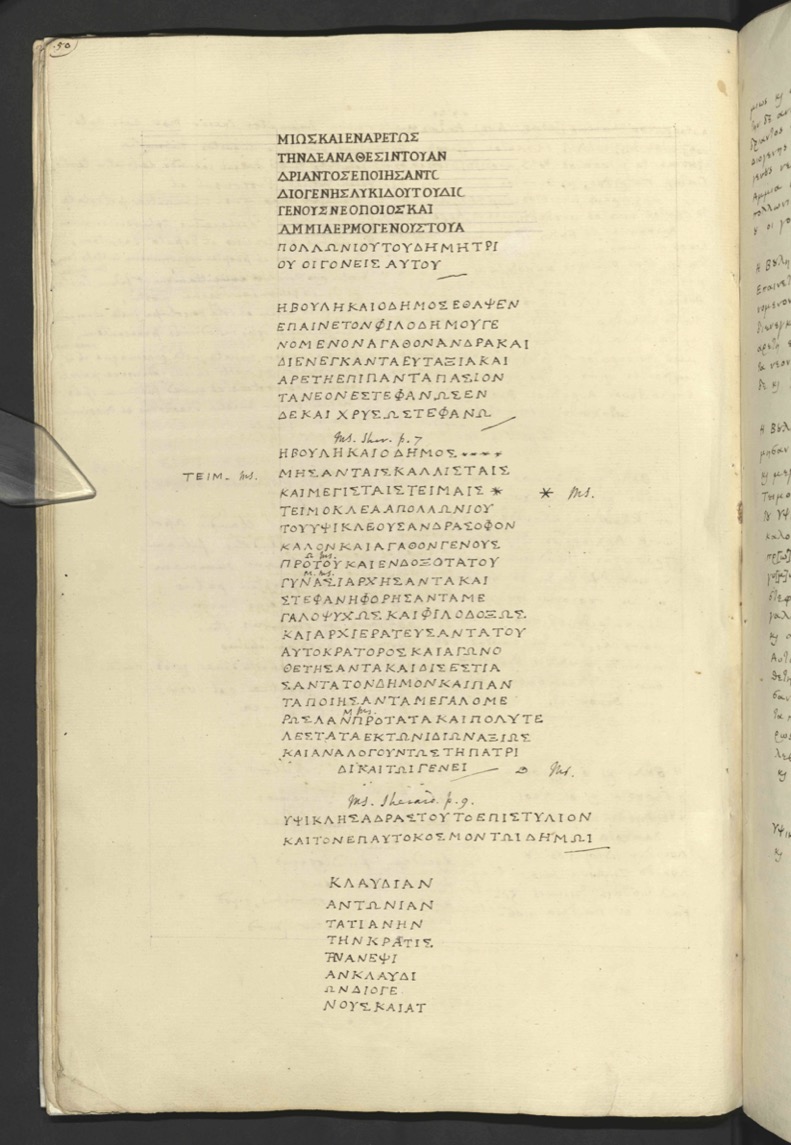 50
ΜΙΩΣΚΑΙΕΝΑΡΕΤΩΣ
ΤΗΝΔΕΑΝΑΘΕΣΙΝΤΟΥΑΝ
ΔΡΙΑΝΤΟΣΕΠΟΙΗΣΑΝΤΟ
ΔΙΟΓΕΝΗΣΛΥΚΙΔΟΥΤΟΥΔΙΟ
ΓΕΝΟΥΣΝΕΟΠΟΙΟΣΚΑΙ
ΑΜΜΙΑΕΡΜΟΓΕΝΟΥΣΤΟΥΑ
ΠΟΛΛΩΝΙΟΥΤΟΥΔΗΜΗΤΡΙ
ΟΥ ΟΙΓΟΝΕΙΣ ΑΥΤΟΥ
ΗΒΟΥΛΗΚΑΙΟΔΗΜΟΣΕΘΑΨΕΝ
ΕΠΑΙΝΕΤΟΝΦΙΛΟΔΗΜΟΥΓΕ
ΝΟΜΕΝΟΝΑΓΑΘΟΝΑΝΔΡΑΚΑΙ
ΔΙΕΝΕΓΚΑΝΤΑΕΥΤΑΞΙΑΚΑΙ
ΑΡΕΤΗΕΠΙΠΑΝΤΑΠΑΣΙΟΝ
ΤΑΝΕΟΝΕΣΤΕΦΑΝΩΣΕΝ
ΔΕΚΑΙ ΧΡΥΣΩΣΤΕΦΑΝΩ
Ms. Sher. p. 7
ΗΒΟΥΛΗΚΑΙΟΔΗΜΟΣ****
ΤΕΙΜ- Ms. ΜΗΣΑΝΤΑΙΣΚΑΛΛΙΣΤΑΙΣ
ΚΑΙΜΕΓΙΣΤΑΙΣΤΕΙΜΑΙΣ * * Ms.
ΤΕΙΜΟΚΛΕΑΑΠΟΛΛΩΝΙΟΥ
ΤΟΥΥΨΙΚΛΕΟΥΣΑΝΔΡΑΣΟΦΟΝ
ΚΑΛΟΝΚΑΙΑΓΑΘΟΝΓΕΝΟΥΣ
Ω Ms.
ΠΡΟΤΟΥΚΑΙΕΝΔΟΞΟΤΑΤΟΥ
Μ. Ms.
ΓΥΝΑΣΙΑΡΧΗΣΑΝΤΑΚΑΙ
ΣΤΕΦΑΝΗΦΟΡΗΣΑΝΤΑΜΕ
ΓΑΛΟΨΥΧΩΣ ΚΑΙΦΙΛΟΔΟΞΩΣ
ΚΑΙΑΡΧΙΕΡΑΤΕΥΣΑΝΤΑΤΟΥ
ΑΥΤΟΚΡΑΤΟΡΟΣΚΑΙΑΓΩΝΟ
ΘΕΤΗΣΑΝΤΑΚΑΙΔΙΣΕΣΤΙΑ
ΣΑΝΤΑΤΟΝΔΗΜΟΝΚΑΙΠΑΝ
ΤΑΠΟΙΗΣΑΝΤΑΜΕΓΑΛΟΜΕ
Μ Ms.
ΡΩΣΛΑΝΠΡΟΤΑΤΑΚΑΙΠΟΛΥΤΕ
ΛΕΣΤΑΤΑΕΚΤΩΝΙΔΙΩΝΑΞΙΩΣ
ΚΑΙΑΝΑΛΟΓΟΥΝΤΩΣΤΗΠΑΤΡΙ
ΔΙΚΑΙΤΩΙΓΕΝΕΙ Ms.
Ms. Sherard. p. 9.
ΥΨΙΚΛΗΣΑΔΡΑΣΤΟΥΤΟΕΠΙΣΤΥΛΙΟΝ
ΚΑΙΤΟΝΕΠΑΥΤΟΚΟΣΜΟΝΤΩΙΔΗΜΩΙ
ΚΛΑΥΔΙΑΝ
ΑΝΤΩΝΙΑΝ
ΤΑΤΙΑΝΗΝ
ΤΗΝΚΡΑΤΙΣ
ΤΗΝΑΝΕΨΙ
ΑΝΚΛΑΥΔΙ
ΩΝΔΙΟΓΕ
ΝΟΥΣΚΑΙΑΤ